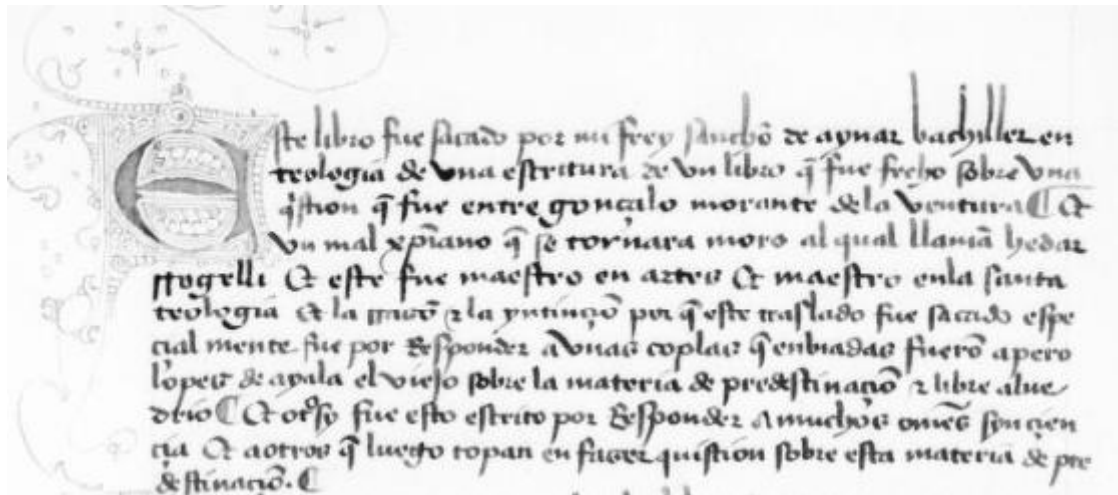 Este libro fue sacado por mi frey sanchō de aynar bachiller en
teologia de vna escritura de vn libro q̄ fue fecho sobre vna
q̄stion q̄ fue entre gonçalo morante de la ventura ¶ Et
vn mal xp̄iano q̄ se torñara moro al qual llamā hedar
Et este fue maestro en artes Et maestro enla santa
teologia Et la rrasō ⁊ la yntinçiō por q̄ este traslado fue sacado espe
çial mente fue por Responder a vnas coplas q̄ enbiadas fuerō apero
lopes de ayala el viejo sobre la materia de predestinaçiō ⁊ libre alue
drio ¶ Et otᵒsy fue esto escrito por Responder a muchos omēs synçien
çia Et aotros q̄ luego topan en faser quistion sobre esta materia de pre
destinaçiō. ¶